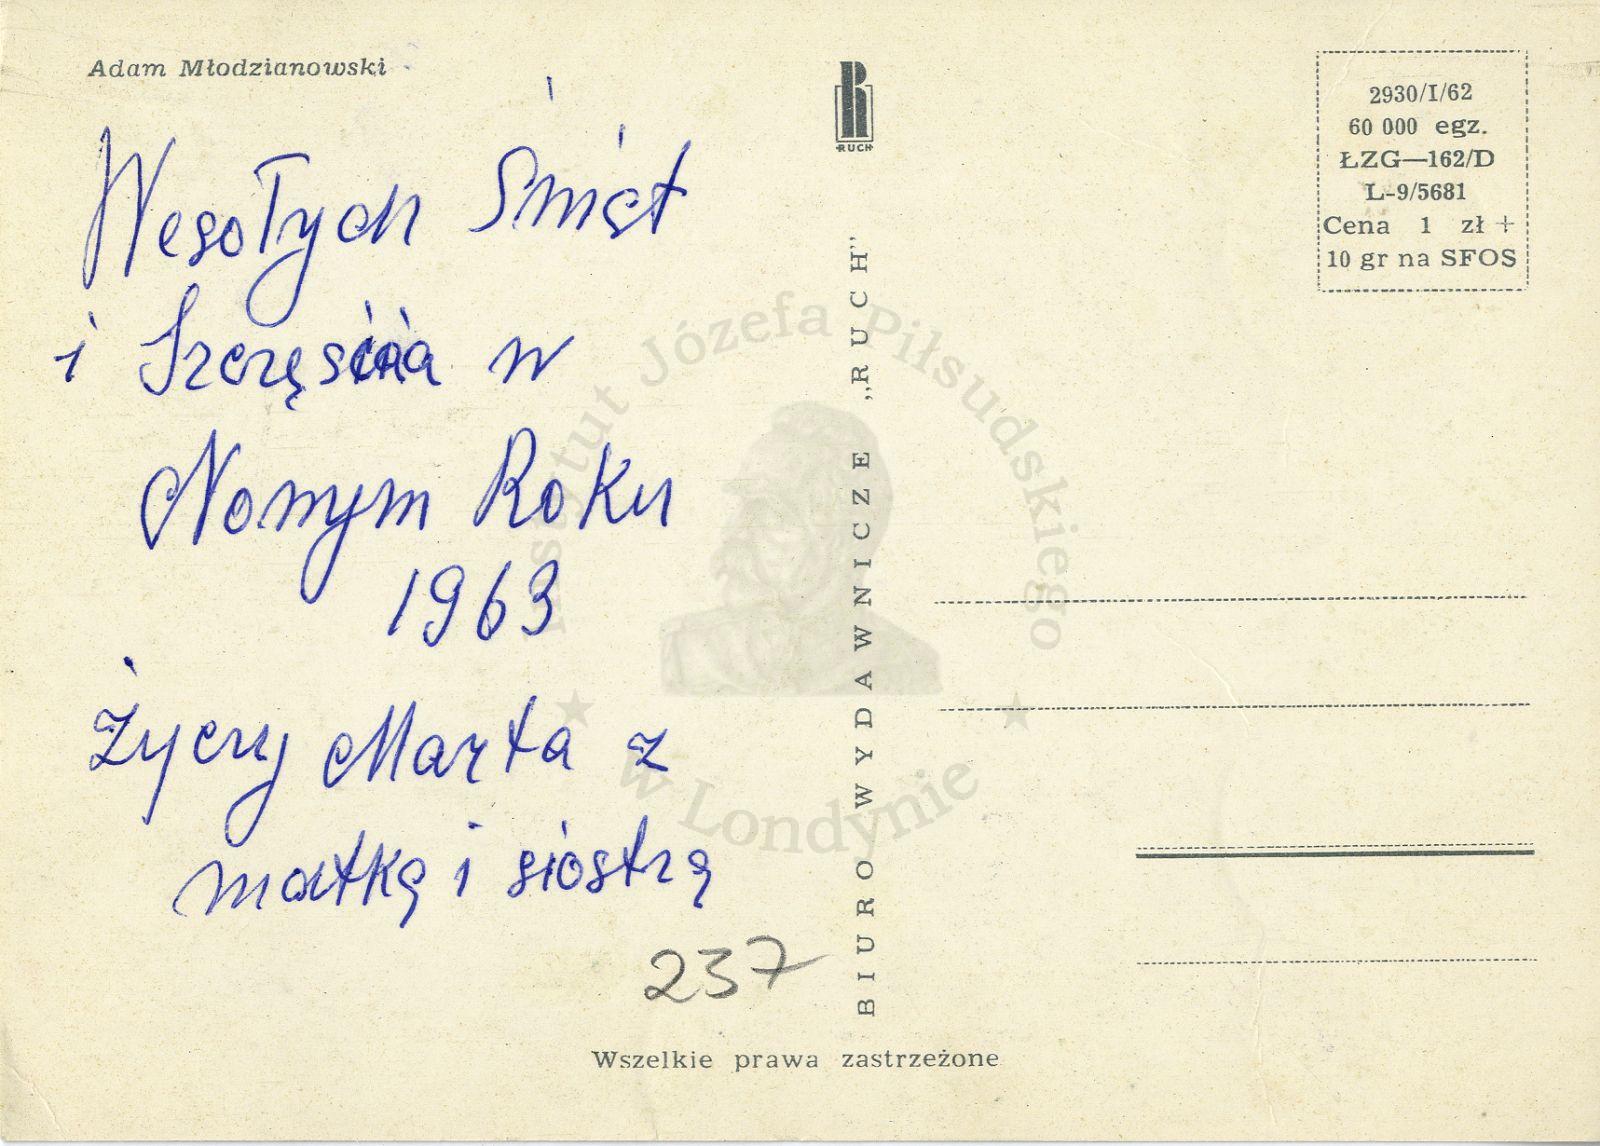 Adam Młodzianowski
Wesołych Świąt
i Szczęścia w
Nowym Roku
1963
Życzy Marta z
matką i siostrą
237
RUCH
BIURO WYDAWNICZE „RUCH"
2930/I/62
60 000 egz.
ŁZG—162/D
L-9/5681
Cena 1 zł +
10 gr na SFOS
Wszelkie prawa zastrzeżone
Instytut Józefa Piłsudskiego
w Londynie